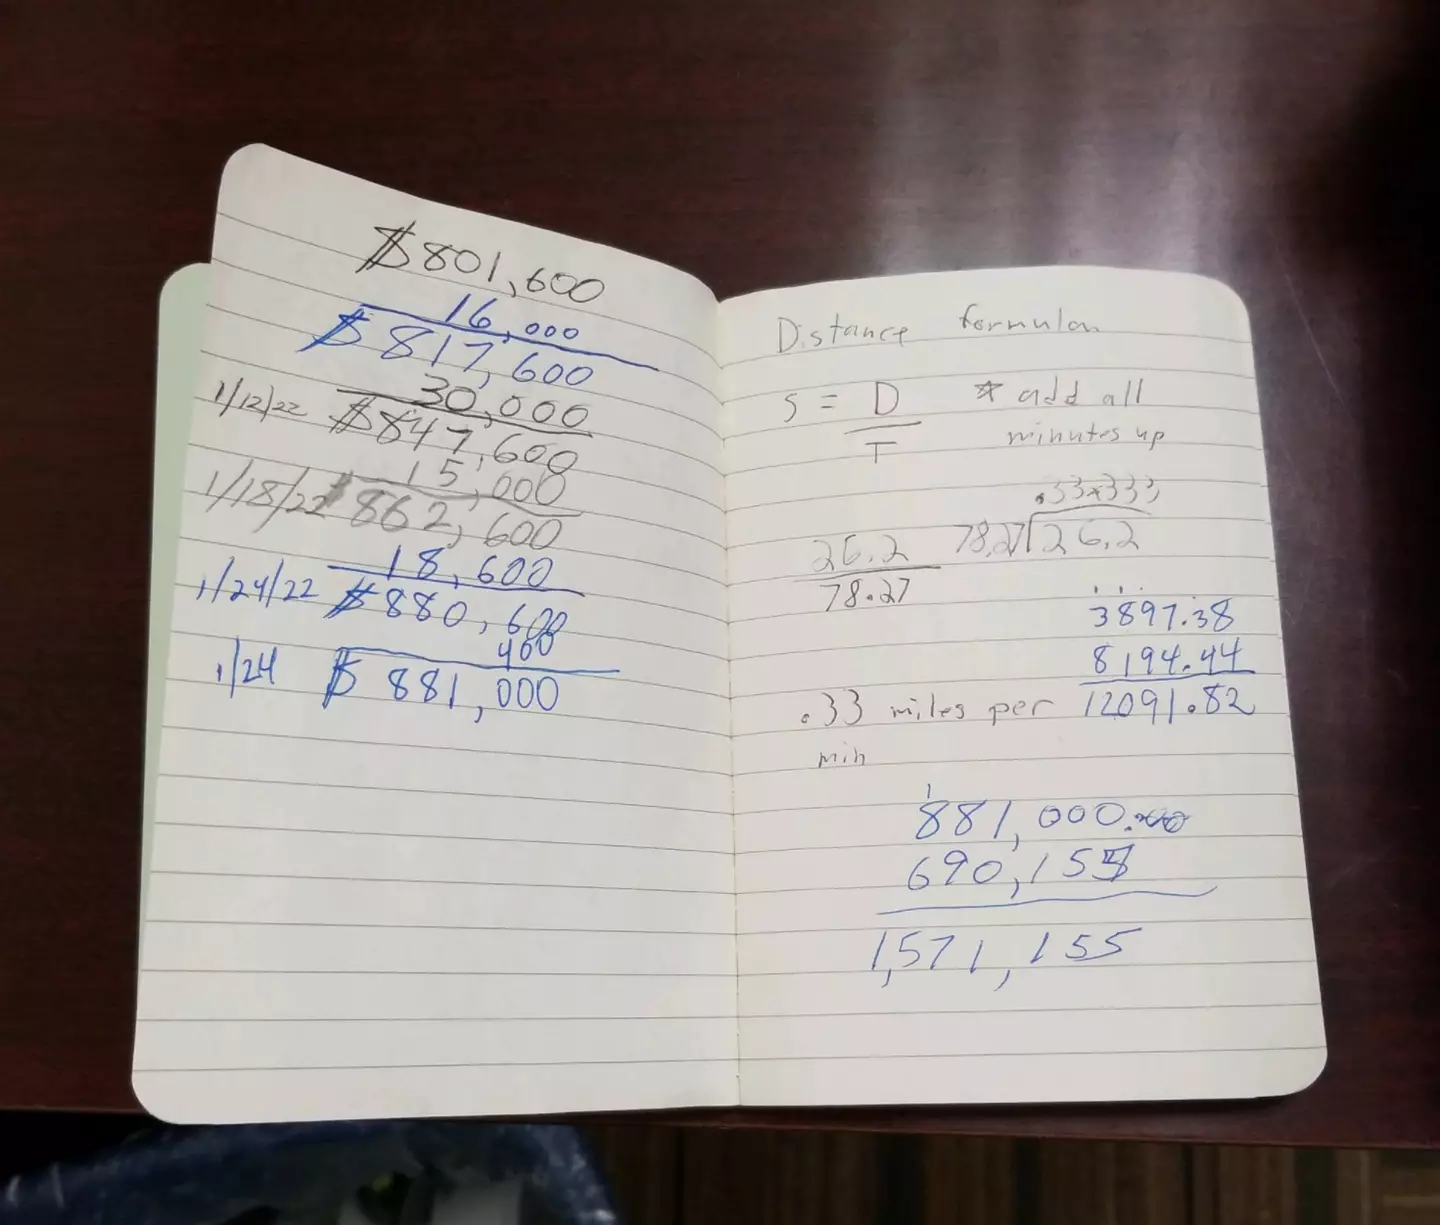 $801,600
16,000
$817,600
30,000
1/12/22 $847,600
15,000
1/18/22 $862,600
18,600
1/24/22 $880,600
400
1/24 $881,000
Distance formulan
S = D
T
* add all
minutes up
26.2
78.27
78.27 26.2
3897.38
8194.44
12091.82
.33 miles per
min
1
881,000.00
690,155
1,571,155